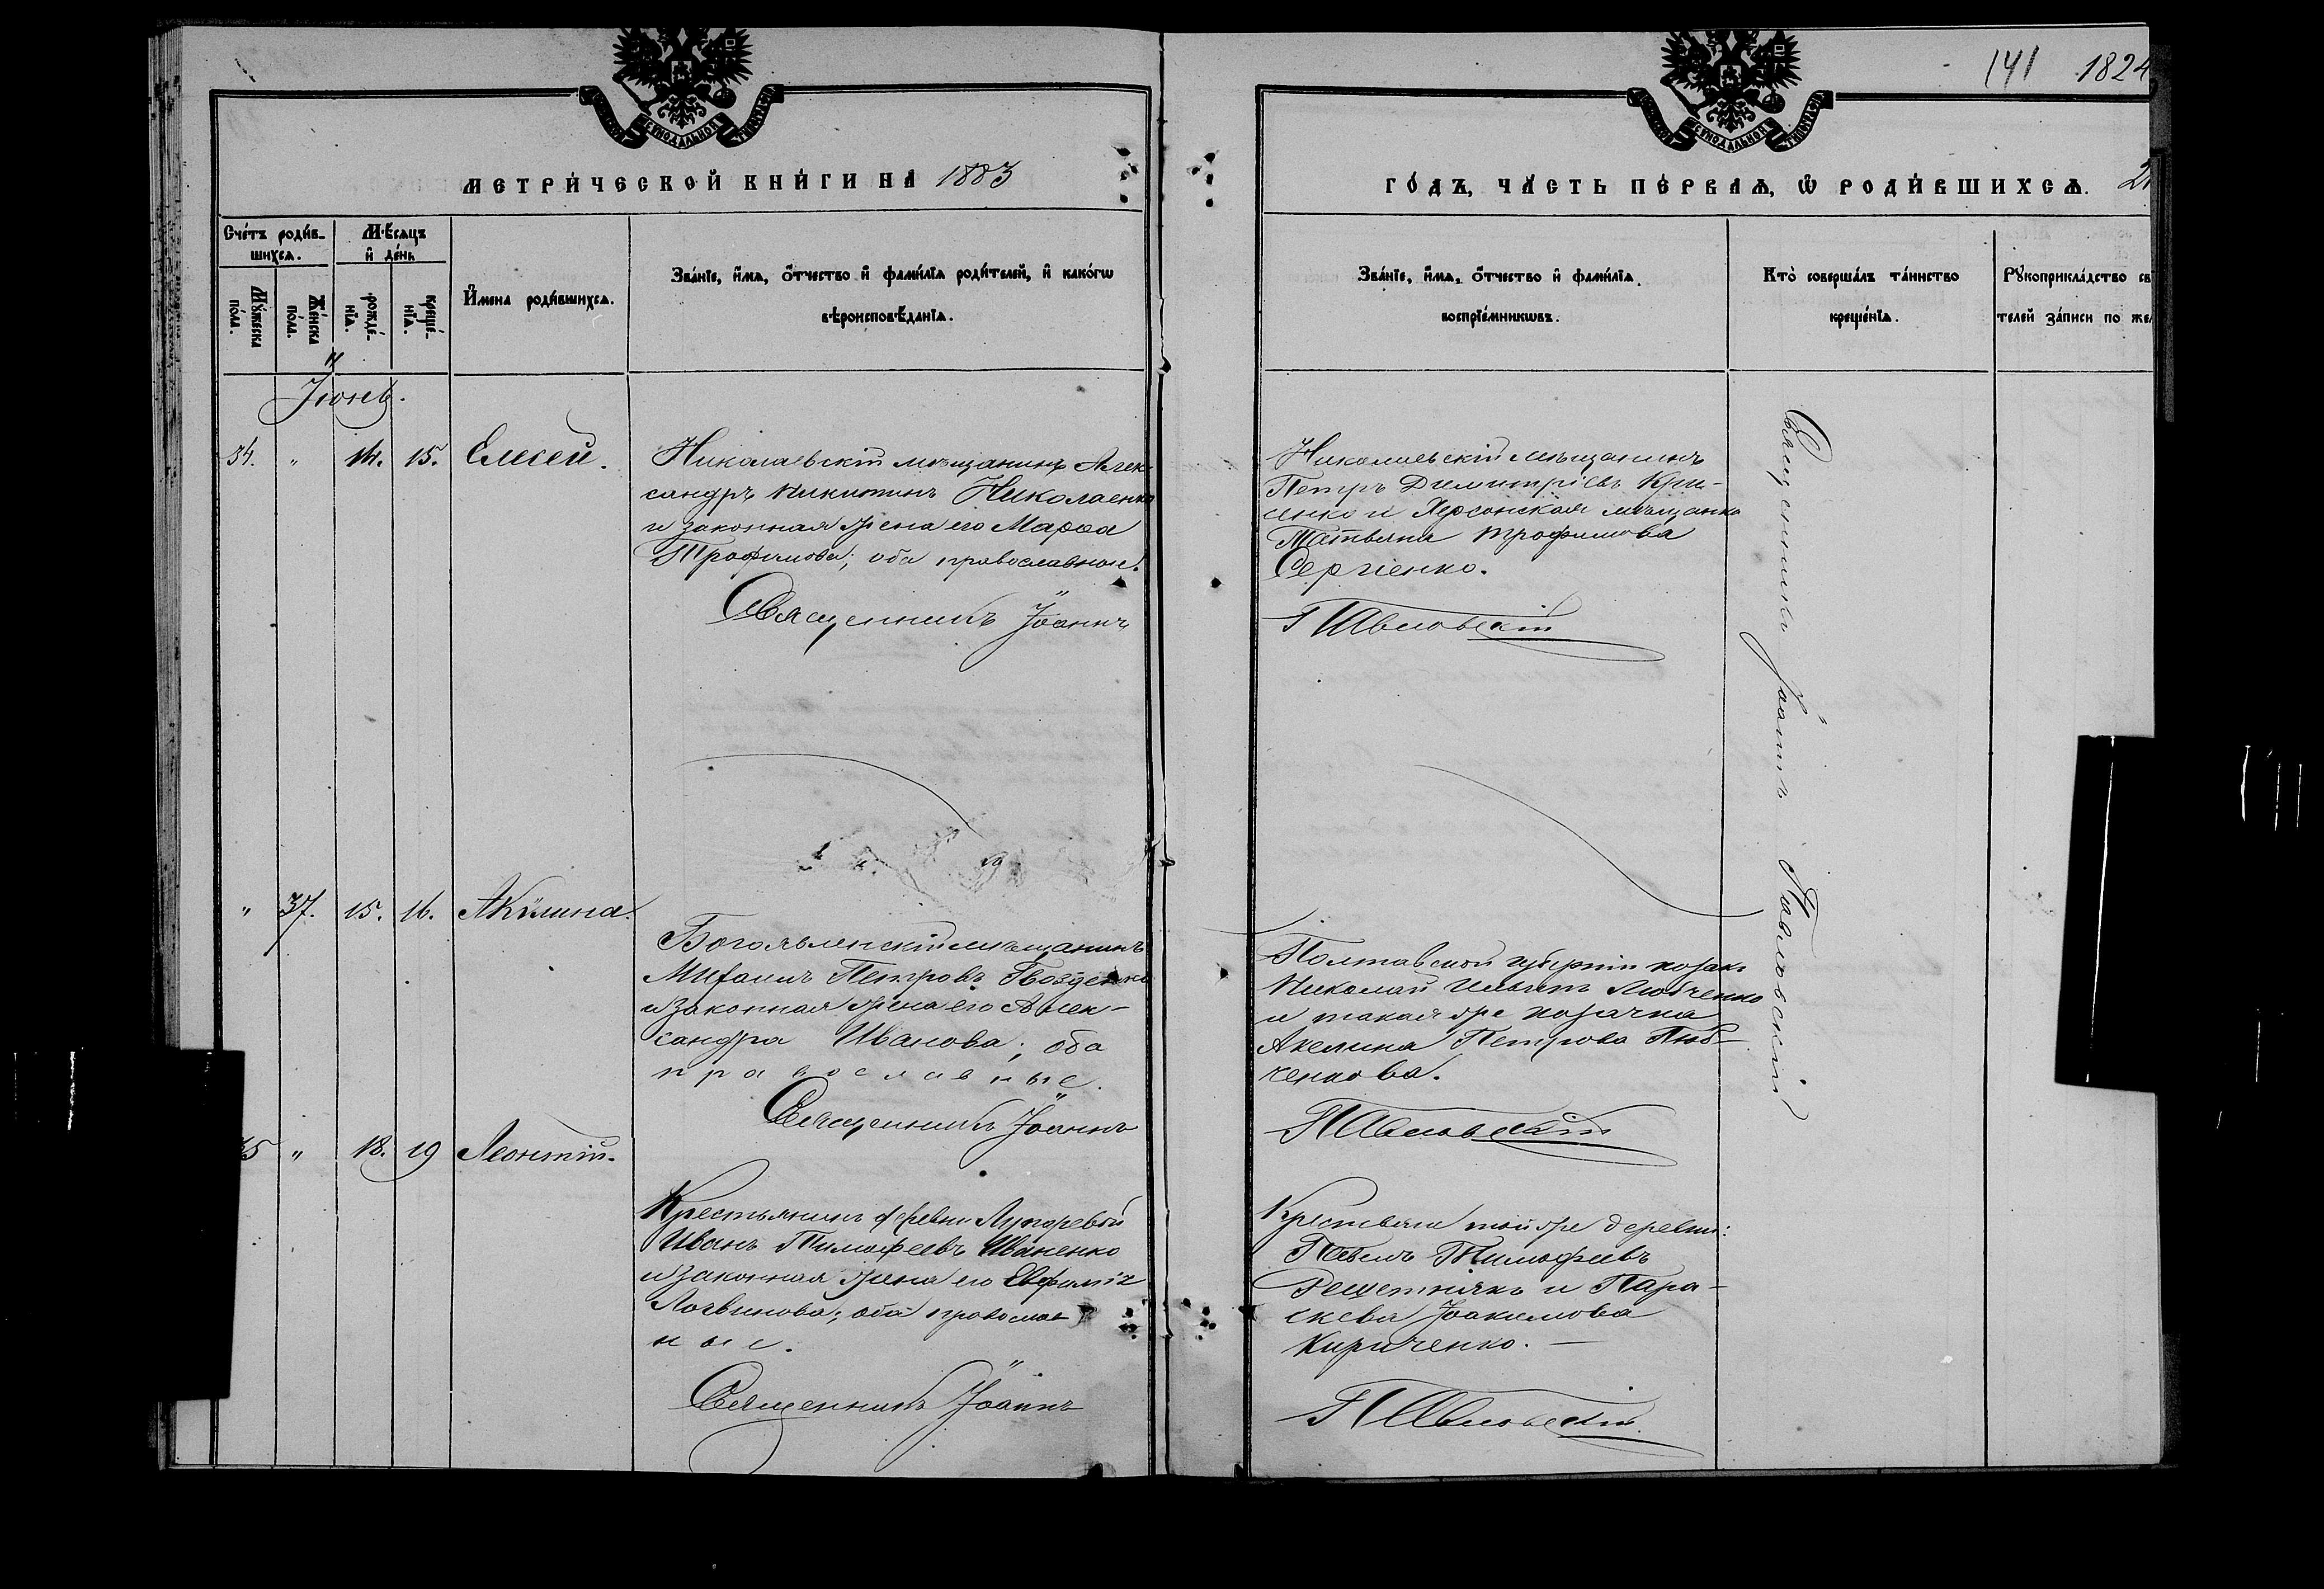 141 1824
СѴНОДАЛЬНОЙ
СѴНОДАЛЬНОЙ
МЕТРИ́ЧЕСКОЙ КНИ́ГИ НА́ 1883
ГО́ДЪ, ЧА́СТЬ ПЕ́РВАѦ, Ѽ РОДИ́ВШИХСѦ.
Сче́тъ роди́в-
шихсѧ.
Мꙋ́жеска
по́ла.
Же́нска
по́ла.
Мѣ́сѧцъ
и҆ де́нь
рожде́-
нїѧ.
креще́-
нїѧ.
И҆мена роди́вшихсѧ.
Зва́нїе, и҆́мѧ, ѻ҆́тчество и҆ фами́лїѧ роди́телей, и҆ како́гѡ
вѣроисповѣ́данїѧ.
Зва́нїе, и҆́мѧ, ѻ҆́тчество и҆ фами́лїѧ
воспрїе́мникѡвъ.
Кто̀ соверша́лъ та́инство
креще́нїѧ.
Рꙋкоприкла́дство св
телей за́писи по же
Іюнь.
34. " 14. 15. Елисей.
Николаевскій мѣщанинъ Алек-
сандръ Никитинъ Николаенко
и законная жена его Марѳа
Трофимова; оба православные.
Священникъ Іоаннъ
Николаевскій мѣщанинъ
Петръ Димитріевъ Кри-
енко и Херсонская мѣщанка
Татьяна Трофимова
Сергіенко.
Павловскій
Священникъ Іоаннъ Павловскій
" 37. 15. 16. Акилина.
Богоявленскій мѣщанинъ
Михаилъ Петровъ Гвозденко
и законная жена его Алек-
сандра Иванова; оба
православные.
Священникъ Іоаннъ
Полтавской губерніи козакъ
Николай Любченко
и такая же козачка
Акилина Петрова Люб-
ченкова.
Павловскій
35 " 18. 19 Леонтій.
Крестьянинъ деревни
Иванъ Тимофеевъ Иваненко
и законная жена его Евфимія
Логвинова; оба православ
ные.
Священникъ Іоаннъ
Крестьяне той же деревни:
Павелъ Тимофеевъ
Решетнякъ и Пара-
скева Іоакимова
Кириченко. —
Павловскій